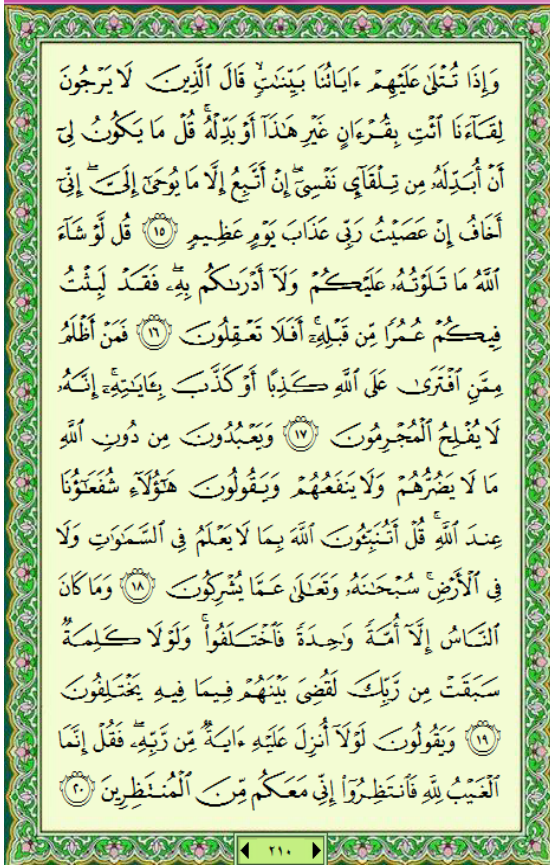 وَإِذَا تُتْلَىٰ عَلَيْهِمْ ءَايَاتُنَا بَيِّنَٰتٍ قَالَ ٱلَّذِينَ لَا يَرْجُونَ
لِقَآءَنَا ٱئْتِ بِقُرْءَانٍ غَيْرِ هَٰذَآ أَوْ بَدِّلْهُ ۚ قُلْ مَا يَكُونُ لِىٓ
أَنْ أُبَدِّلَهُۥ مِن تِلْقَآئِ نَفْسِىٓ ۖ إِنْ أَتَّبِعُ إِلَّا مَا يُوحَىٰٓ إِلَىَّ ۖ إِنِّىٓ
أَخَافُ إِنْ عَصَيْتُ رَبِّى عَذَابَ يَوْمٍ عَظِيمٍ ١٥ قُل لَّوْ شَآءَ
ٱللَّهُ مَا تَلَوْتُهُۥ عَلَيْكُمْ وَلَآ أَدْرَىٰكُم بِهِۦ ۖ فَقَدْ لَبِثْتُ
فِيكُمْ عُمُرًا مِّن قَبْلِهِۦٓ ۚ أَفَلَا تَعْقِلُونَ ١٦ فَمَنْ أَظْلَمُ
مِمَّنِ ٱفْتَرَىٰ عَلَى ٱللَّهِ كَذِبًا أَوْ كَذَّبَ بِـَٔايَٰتِهِۦٓ ۚ إِنَّهُۥ
لَا يُفْلِحُ ٱلْمُجْرِمُونَ ١٧ وَيَعْبُدُونَ مِن دُونِ ٱللَّهِ
مَا لَا يَضُرُّهُمْ وَلَا يَنفَعُهُمْ وَيَقُولُونَ هَٰٓؤُلَآءِ شُفَعَٰٓؤُنَا
عِندَ ٱللَّهِ ۚ قُلْ أَتُنَبِّـُٔونَ ٱللَّهَ بِمَا لَا يَعْلَمُ فِى ٱلسَّمَٰوَٰتِ وَلَا
فِى ٱلْأَرْضِ ۚ سُبْحَٰنَهُۥ وَتَعَٰلَىٰ عَمَّا يُشْرِكُونَ ١٨ وَمَا كَانَ
ٱلنَّاسُ إِلَّآ أُمَّةً وَٰحِدَةً فَٱخْتَلَفُوا۟ ۚ وَلَوْلَا كَلِمَةٌ
سَبَقَتْ مِن رَّبِّكَ لَقُضِىَ بَيْنَهُمْ فِيمَا فِيهِ يَخْتَلِفُونَ
١٩ وَيَقُولُونَ لَوْلَآ أُنزِلَ عَلَيْهِ ءَايَةٌ مِّن رَّبِّهِۦ ۖ فَقُلْ إِنَّمَا
ٱلْغَيْبُ لِلَّهِ فَٱنتَظِرُوٓا۟ إِنِّى مَعَكُم مِّنَ ٱلْمُنتَظِرِينَ ٢٠
٢١٠